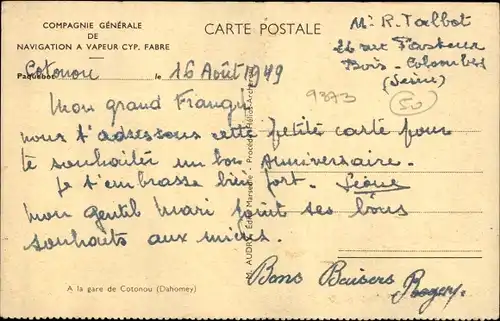 COMPAGNIE GÉNÉRALE
DE
NAVIGATION A VAPEUR CYP. FABRE
CARTE POSTALE
Mr R. Talbot
26 rue Pasteur
Bois-Colombes
(Seine)
Paquebot Cotonou le 16 Août 1949
9373
50
Mon grand
nous t'adressons cette petite carte pour
te souhaiter un bon Anniversaire.
Je t'embrasse bien fort.
mon gentil mari joint ses bons
souhaits aux miens.
Bons Baisers
Roger
A la gare de Cotonou (Dahomey)